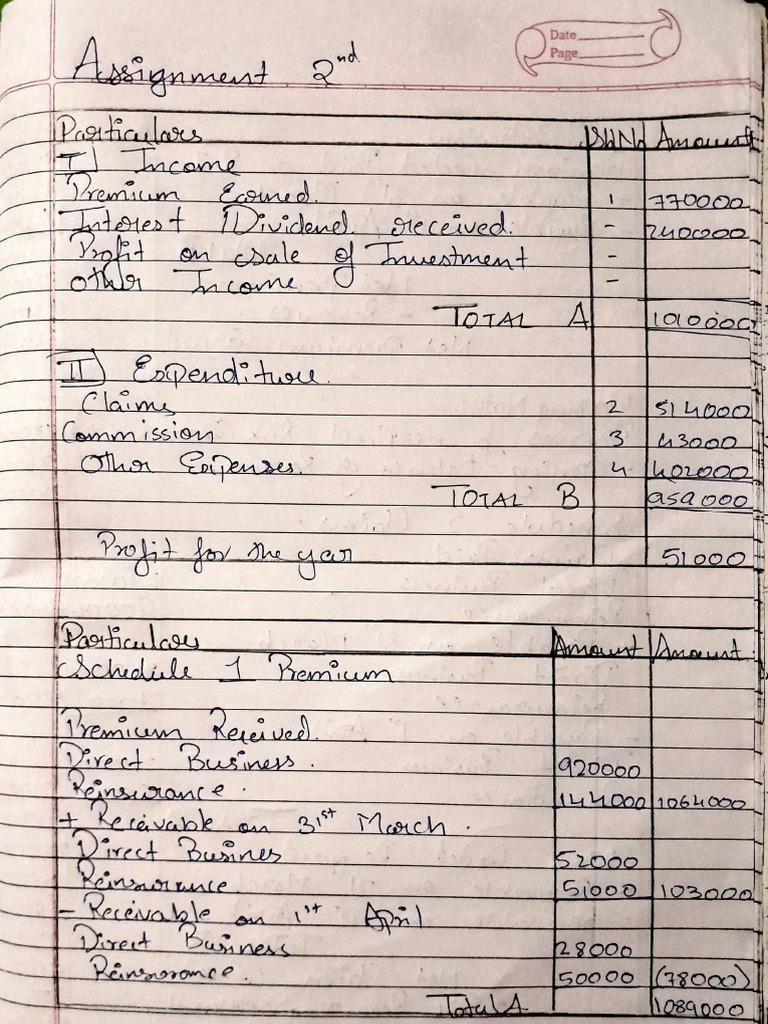 Date
Page
Assignment 2nd
Particulars Sh.No Amount
I) Income
Premium Earned. 1 770000
Interest / Dividend received. - 240000
Profit on Sale of Investment -
Other Income -
TOTAL A 1010000
II) Expenditure.
Claims 2 514000
Commission 3 43000
Other Expenses. 4 402000
TOTAL B 959000
Profit for the year 51000
Particulars Amount Amount
Schedule 1 Premium
Premium Received.
Direct Business. 920000
Reinsurance. 144000 1064000
+ Receivable on 31st March.
Direct Busines 52000
Reinsurance. 51000 103000
- Receivable on 1st April
Direct Business 28000
Reinsurance. 50000 (78000)
Total A 1089000